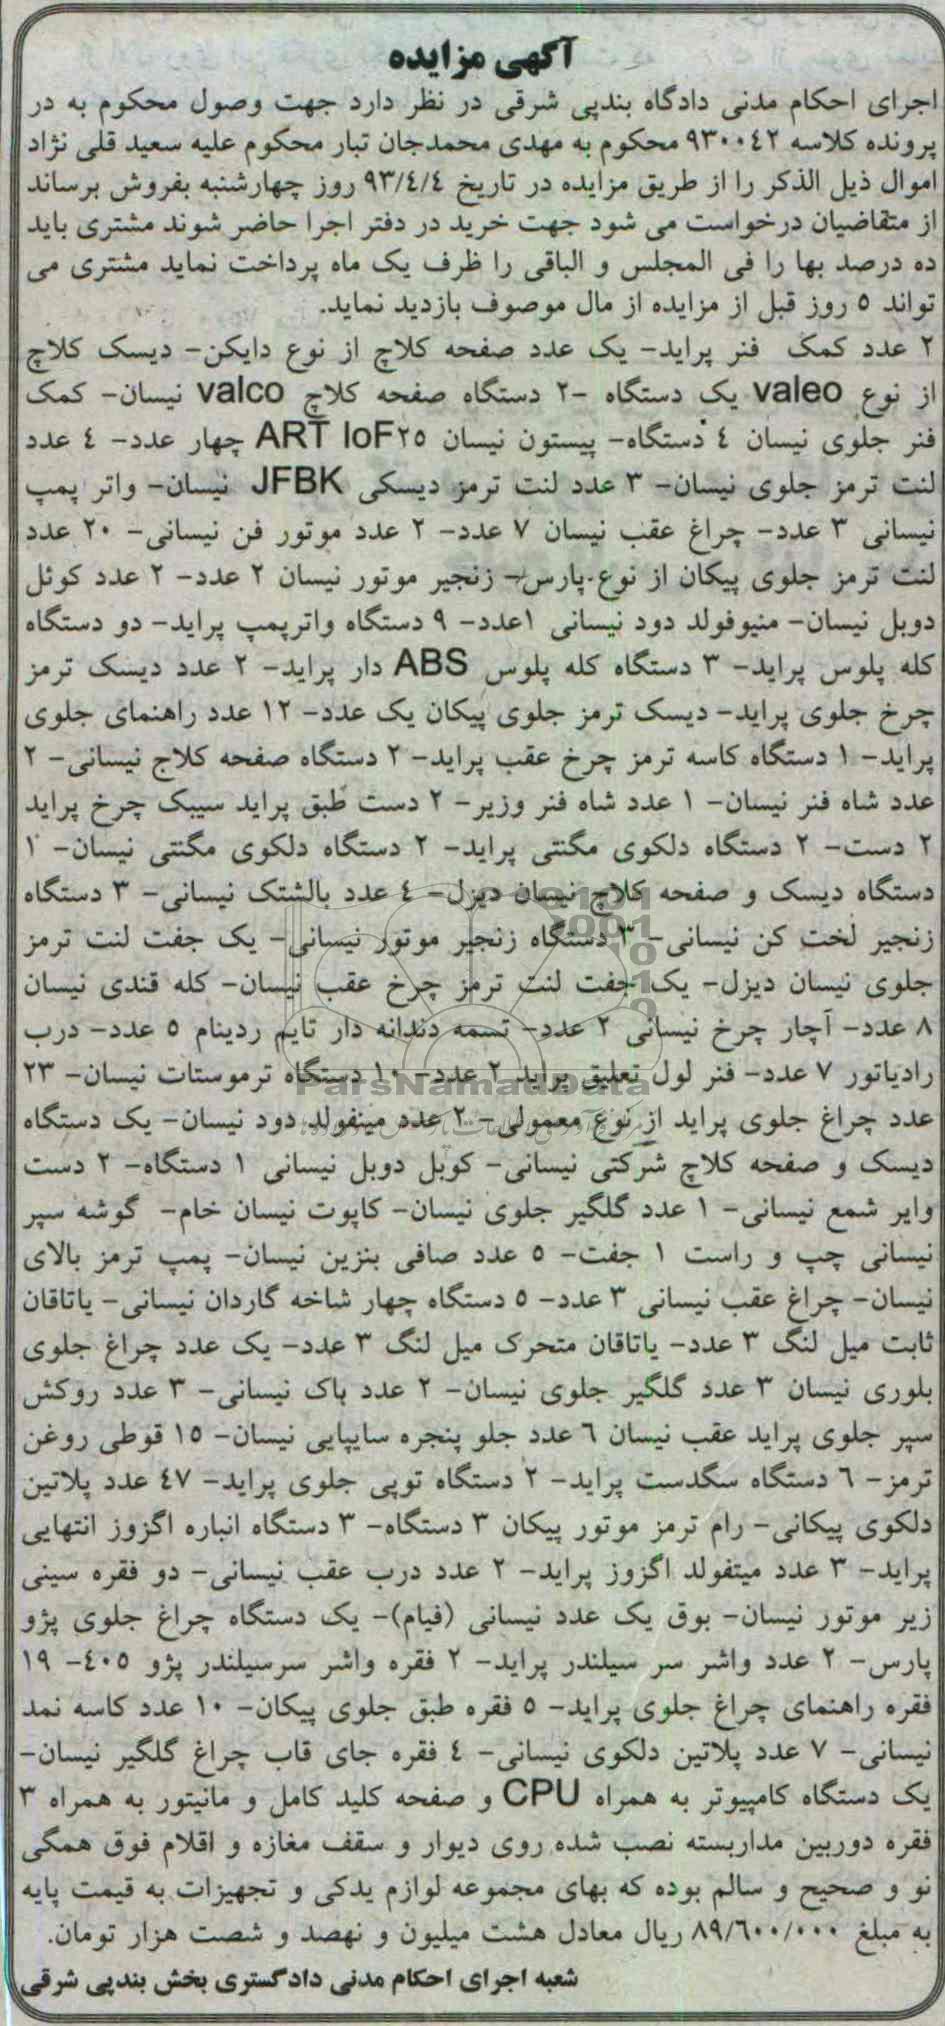 آگهی مزایده
اجرای احکام مدنی دادگاه بندپی شرقی در نظر دارد جهت وصول محکوم به در
پرونده کلاسه ۹۳۰۰٤۲ محکوم به مهدی محمدجان تبار محکوم علیه سعید قلی نژاد
اموال ذیل الذکر را از طریق مزایده در تاریخ ۹۳/٤/٤ روز چهارشنبه بفروش برساند
از متقاضیان درخواست می شود جهت خرید در دفتر اجرا حاضر شوند مشتری باید
ده درصد بها را فی المجلس و الباقی را ظرف یک ماه پرداخت نماید مشتری می
تواند ۵ روز قبل از مزایده از مال موصوف بازدید نماید.
۲ عدد کمک فنر پراید- یک عدد صفحه کلاچ از نوع دایکن- دیسک کلاچ
از نوع valeo یک دستگاه -۲ دستگاه صفحه کلاچ valco نیسان- کمک
فنر جلوی نیسان ٤ دستگاه- پیستون نیسان ART loF۲۵ چهار عدد- ٤ عدد
لنت ترمز جلوی نیسان- ۳ عدد لنت ترمز دیسکی JFBK نیسان- واتر پمپ
نیسانی ۳ عدد- چراغ عقب نیسان ۷ عدد- ۲ عدد موتور فن نیسانی- ۲۰ عدد
لنت ترمز جلوی پیکان از نوع پارس- زنجیر موتور نیسان ۲ عدد- ۲ عدد کوئل
دوبل نیسان- منیوفولد دود نیسانی ۱عدد- ۹ دستگاه واترپمپ پراید- دو دستگاه
کله پلوس پراید- ۳ دستگاه کله پلوس ABS دار پراید- ۲ عدد دیسک ترمز
چرخ جلوی پراید- دیسک ترمز جلوی پیکان یک عدد- ۱۲ عدد راهنمای جلوی
پراید- ۱ دستگاه کاسه ترمز چرخ عقب پراید- ۲ دستگاه صفحه کلاج نیسانی- ۲
عدد شاه فنر نیسان- ۱ عدد شاه فنر وزیر- ۲ دست طبق پراید سیبک چرخ پراید
۲ دست- ۲ دستگاه دلکوی مگنتی پراید- ۲ دستگاه دلکوی مگنتی نیسان- ۱
دستگاه دیسک و صفحه کلاچ نیسان دیزل- ٤ عدد بالشتک نیسانی- ۳ دستگاه
زنجیر لخت کن نیسانی- ۳ دستگاه زنجیر موتور نیسانی- یک جفت لنت ترمز
جلوی نیسان دیزل- یک جفت لنت ترمز چرخ عقب نیسان- کله قندی نیسان
۸ عدد- آچار چرخ نیسانی ۲ عدد- تسمه دندانه دار تایم ردینام ۵ عدد- درب
رادیاتور ۷ عدد- فنر لول تعلیق پراید ۲ عدد- ۱۰ دستگاه ترموستات نیسان- ۲۳
ParsNamadData
عدد چراغ جلوی پراید از نوع معمولی- ۲ عدد مینفولد دود نیسان- یک دستگاه
دیسک و صفحه کلاچ شرکتی نیسانی- کوبل دوبل نیسانی ۱ دستگاه- ۲ دست
وایر شمع نیسانی- ۱ عدد گلگیر جلوی نیسان- کاپوت نیسان خام- گوشه سپر
نیسانی چپ و راست ۱ جفت- ۵ عدد صافی بنزین نیسان- پمپ ترمز بالای
نیسان- چراغ عقب نیسانی ۳ عدد- ۵ دستگاه چهار شاخه گاردان نیسانی- یاتاقان
ثابت میل لنگ ۳ عدد- یاتاقان متحرک میل لنگ ۳ عدد- یک عدد چراغ جلوی
بلوری نیسان ۳ عدد گلگیر جلوی نیسان- ۲ عدد باک نیسانی- ۳ عدد روکش
سپر جلوی پراید عقب نیسان ٦ عدد جلو پنجره سایپایی نیسان- ۱۵ قوطی روغن
ترمز- ٦ دستگاه سگدست پراید- ۲ دستگاه توپی جلوی پراید- ٤۷ عدد پلاتین
دلکوی پیکانی- رام ترمز موتور پیکان ۳ دستگاه- ۳ دستگاه انباره اگزوز انتهایی
پراید- ۳ عدد میتفولد اگزوز پراید- ۲ عدد درب عقب نیسانی- دو فقره سینی
زیر موتور نیسان- بوق یک عدد نیسانی (فیام)- یک دستگاه چراغ جلوی پژو
پارس- ۲ عدد واشر سر سیلندر پراید- ۲ فقره واشر سرسیلندر پژو ٤۰۵- ۱۹
فقره راهنمای چراغ جلوی پراید- ۵ فقره طبق جلوی پیکان- ۱۰ عدد کاسه نمد
نیسانی- ۷ عدد پلاتین دلکوی نیسانی- ٤ فقره جای قاب چراغ گلگیر نیسان-
یک دستگاه کامپیوتر به همراه CPU و صفحه کلید کامل و مانیتور به همراه ۳
فقره دوربین مداربسته نصب شده روی دیوار و سقف مغازه و اقلام فوق همگی
نو و صحیح و سالم بوده که بهای مجموعه لوازم یدکی و تجهیزات به قیمت پایه
به مبلغ ۸۹/٦۰۰/۰۰۰ ریال معادل هشت میلیون و نهصد و شصت هزار تومان.
شعبه اجرای احکام مدنی دادگستری بخش بندپی شرقی